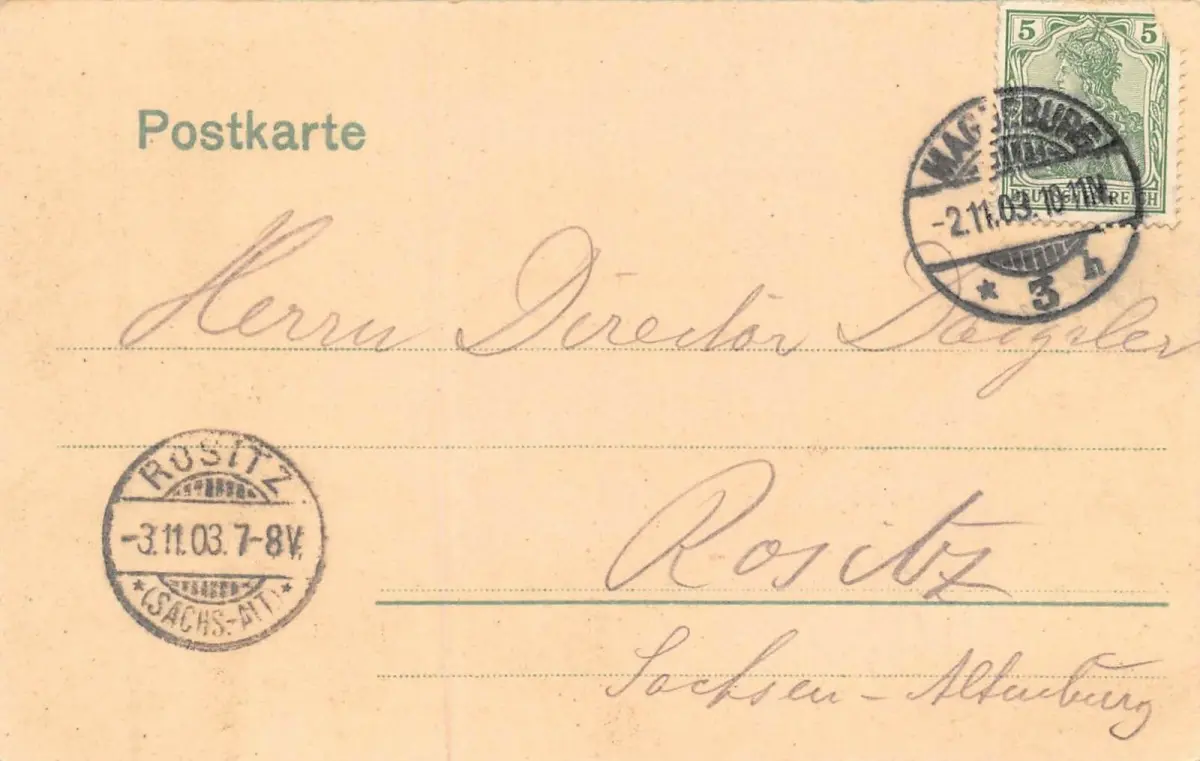 5 5
DEUTSCHES REICH
Postkarte
MAGDEBURG
-2.11.03.10-11N.
* 3 h
Herrn Director
ROSITZ
-3.11.03. 7-8V.
*(SACHS.-ALT.)*
Rositz
Sachsen - Altenburg